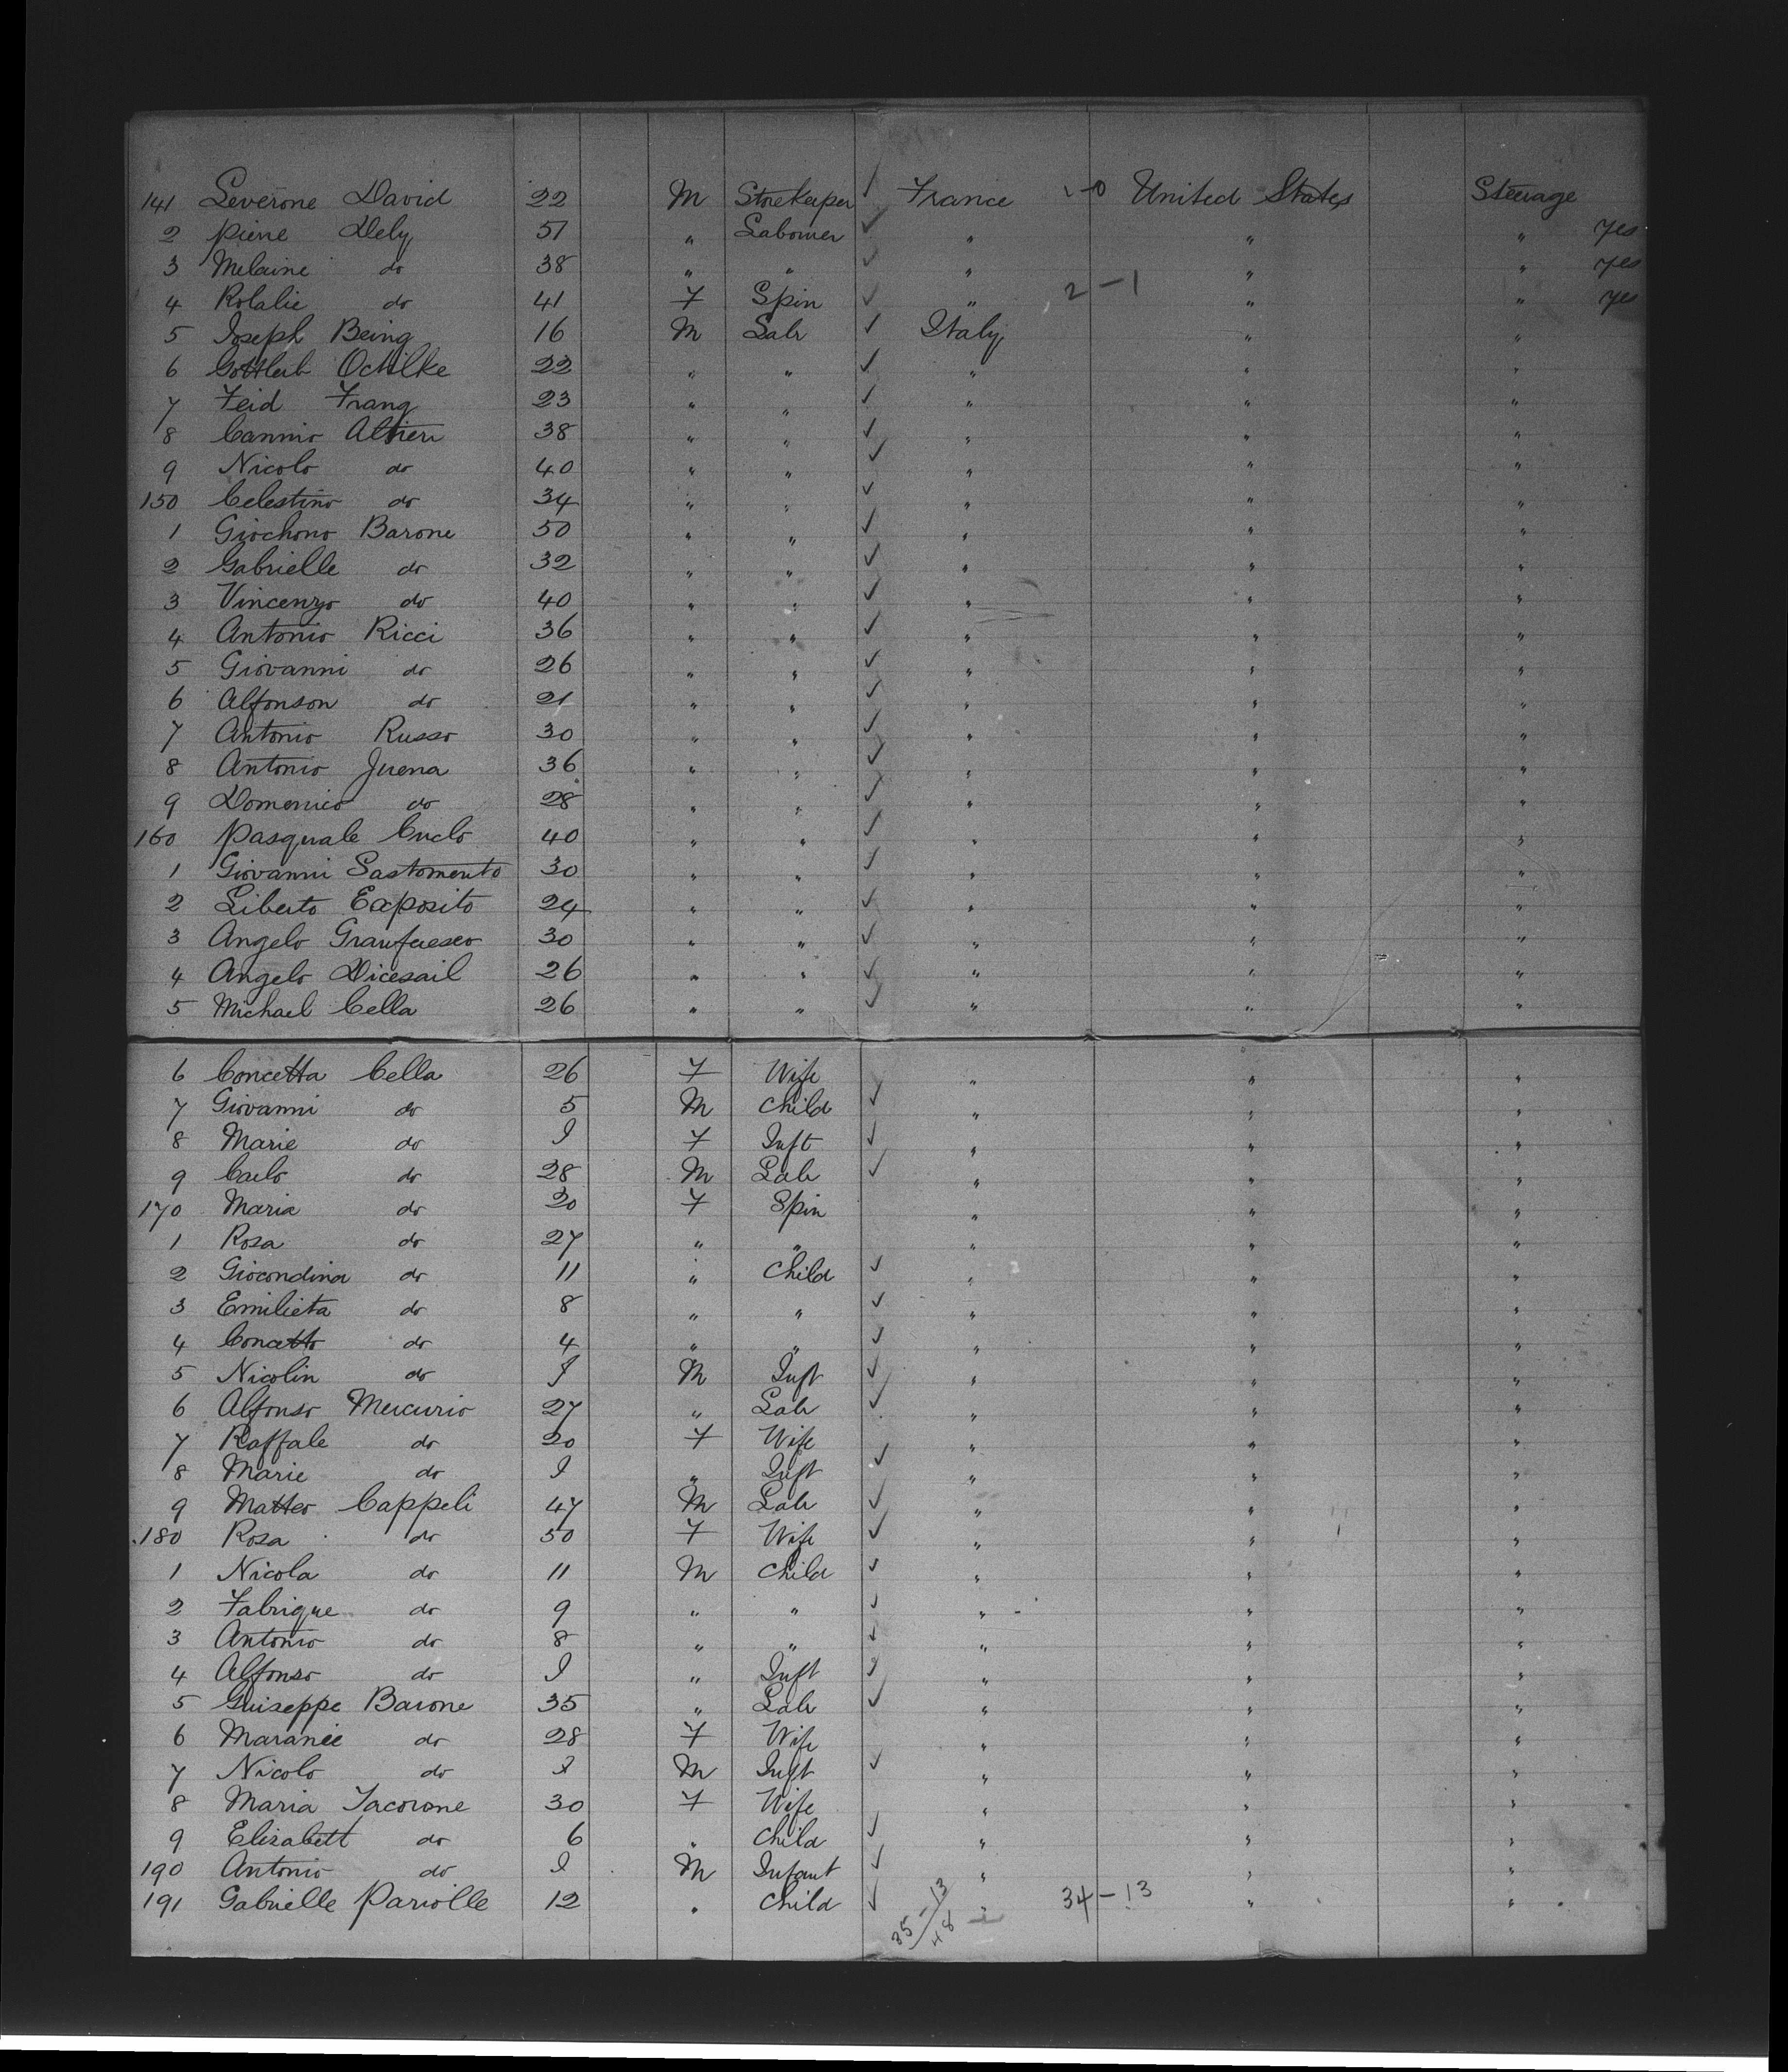 141 Leverone David 22 M Storekeeper ✓ France 1-0 United States Steerage
2 Pierre Dely 51 " Labourer ✓ " " " yes
3 Melaine do 38 " " ✓ " " " yes
4 Rolalie do 41 F Spin ✓ " 2-1 " " yes
5 Joseph Being 16 M Labr ✓ Italy " "
6 Gottleib Ochilke 22 " " ✓ " " "
7 Feid Franz 23 " " ✓ " " "
8 Cannio Altieri 38 " " ✓ " " "
9 Nicolo do 40 " " ✓ " " "
150 Celestino do 34 " " ✓ " " "
1 Giochono Barone 50 " " ✓ " " "
2 Gabrielle do 32 " " ✓ " " "
3 Vincenzo do 40 " " ✓ " " "
4 Antonio Ricci 36 " " ✓ " " "
5 Giovanni do 26 " " ✓ " " "
6 Alfonson do 21 " " ✓ " " "
7 Antonio Russo 30 " " ✓ " " "
8 Antonio Juena 36 " " ✓ " " "
9 Domenico do 28 " " ✓ " " "
160 Pasquale Cuclo 40 " " ✓ " " "
1 Giovanni Sastomento 30 " " ✓ " " "
2 Liberto Exposito 24 " " ✓ " " "
3 Angelo 30 " " ✓ " " "
4 Angelo Dicesail 26 " " ✓ " " "
5 Michael Cella 26 " " ✓ " " "
6 Concetta Cella 26 F Wife " " "
7 Giovanni do 5 M Child ✓ " " "
8 Marie do I F Inft ✓ " " "
9 Carlo do 28 M Labr ✓ " " "
170 Maria do 20 F Spin " " "
1 Rosa do 27 " " " " "
2 Giocondina do 11 " Child ✓ " " "
3 Emilieta do 8 " " ✓ " " "
4 Concetto do 4 " " ✓ " " "
5 Nicolin do I M Inft ✓ " " "
6 Alfonso Mercurio 27 " Labr ✓ " " "
7 Raffale do 20 F Wife " " "
8 Marie do I " Inft ✓ " " "
9 Matteo Cappeli 47 M Labr ✓ " " "
180 Rosa do 50 F Wife ✓ " " "
1 Nicola do 11 M Child ✓ " " "
2 Fabrique do 9 " " ✓ " " "
3 Antonio do 8 " " ✓ " " "
4 Alfonso do I " Inft ✓ " " "
5 Guiseppe Barone 35 " Labr ✓ " " "
6 Maranee do 28 F Wife " " "
7 Nicolo do I M Inft ✓ " " "
8 Maria Iacovone 30 F Wife " " "
9 Elisabett do 6 " Child ✓ " " "
190 Antonio do I M Infant ✓ " " "
191 Gabrielle Pariolle 12 " Child ✓ " 34-13 " "
35-13
48